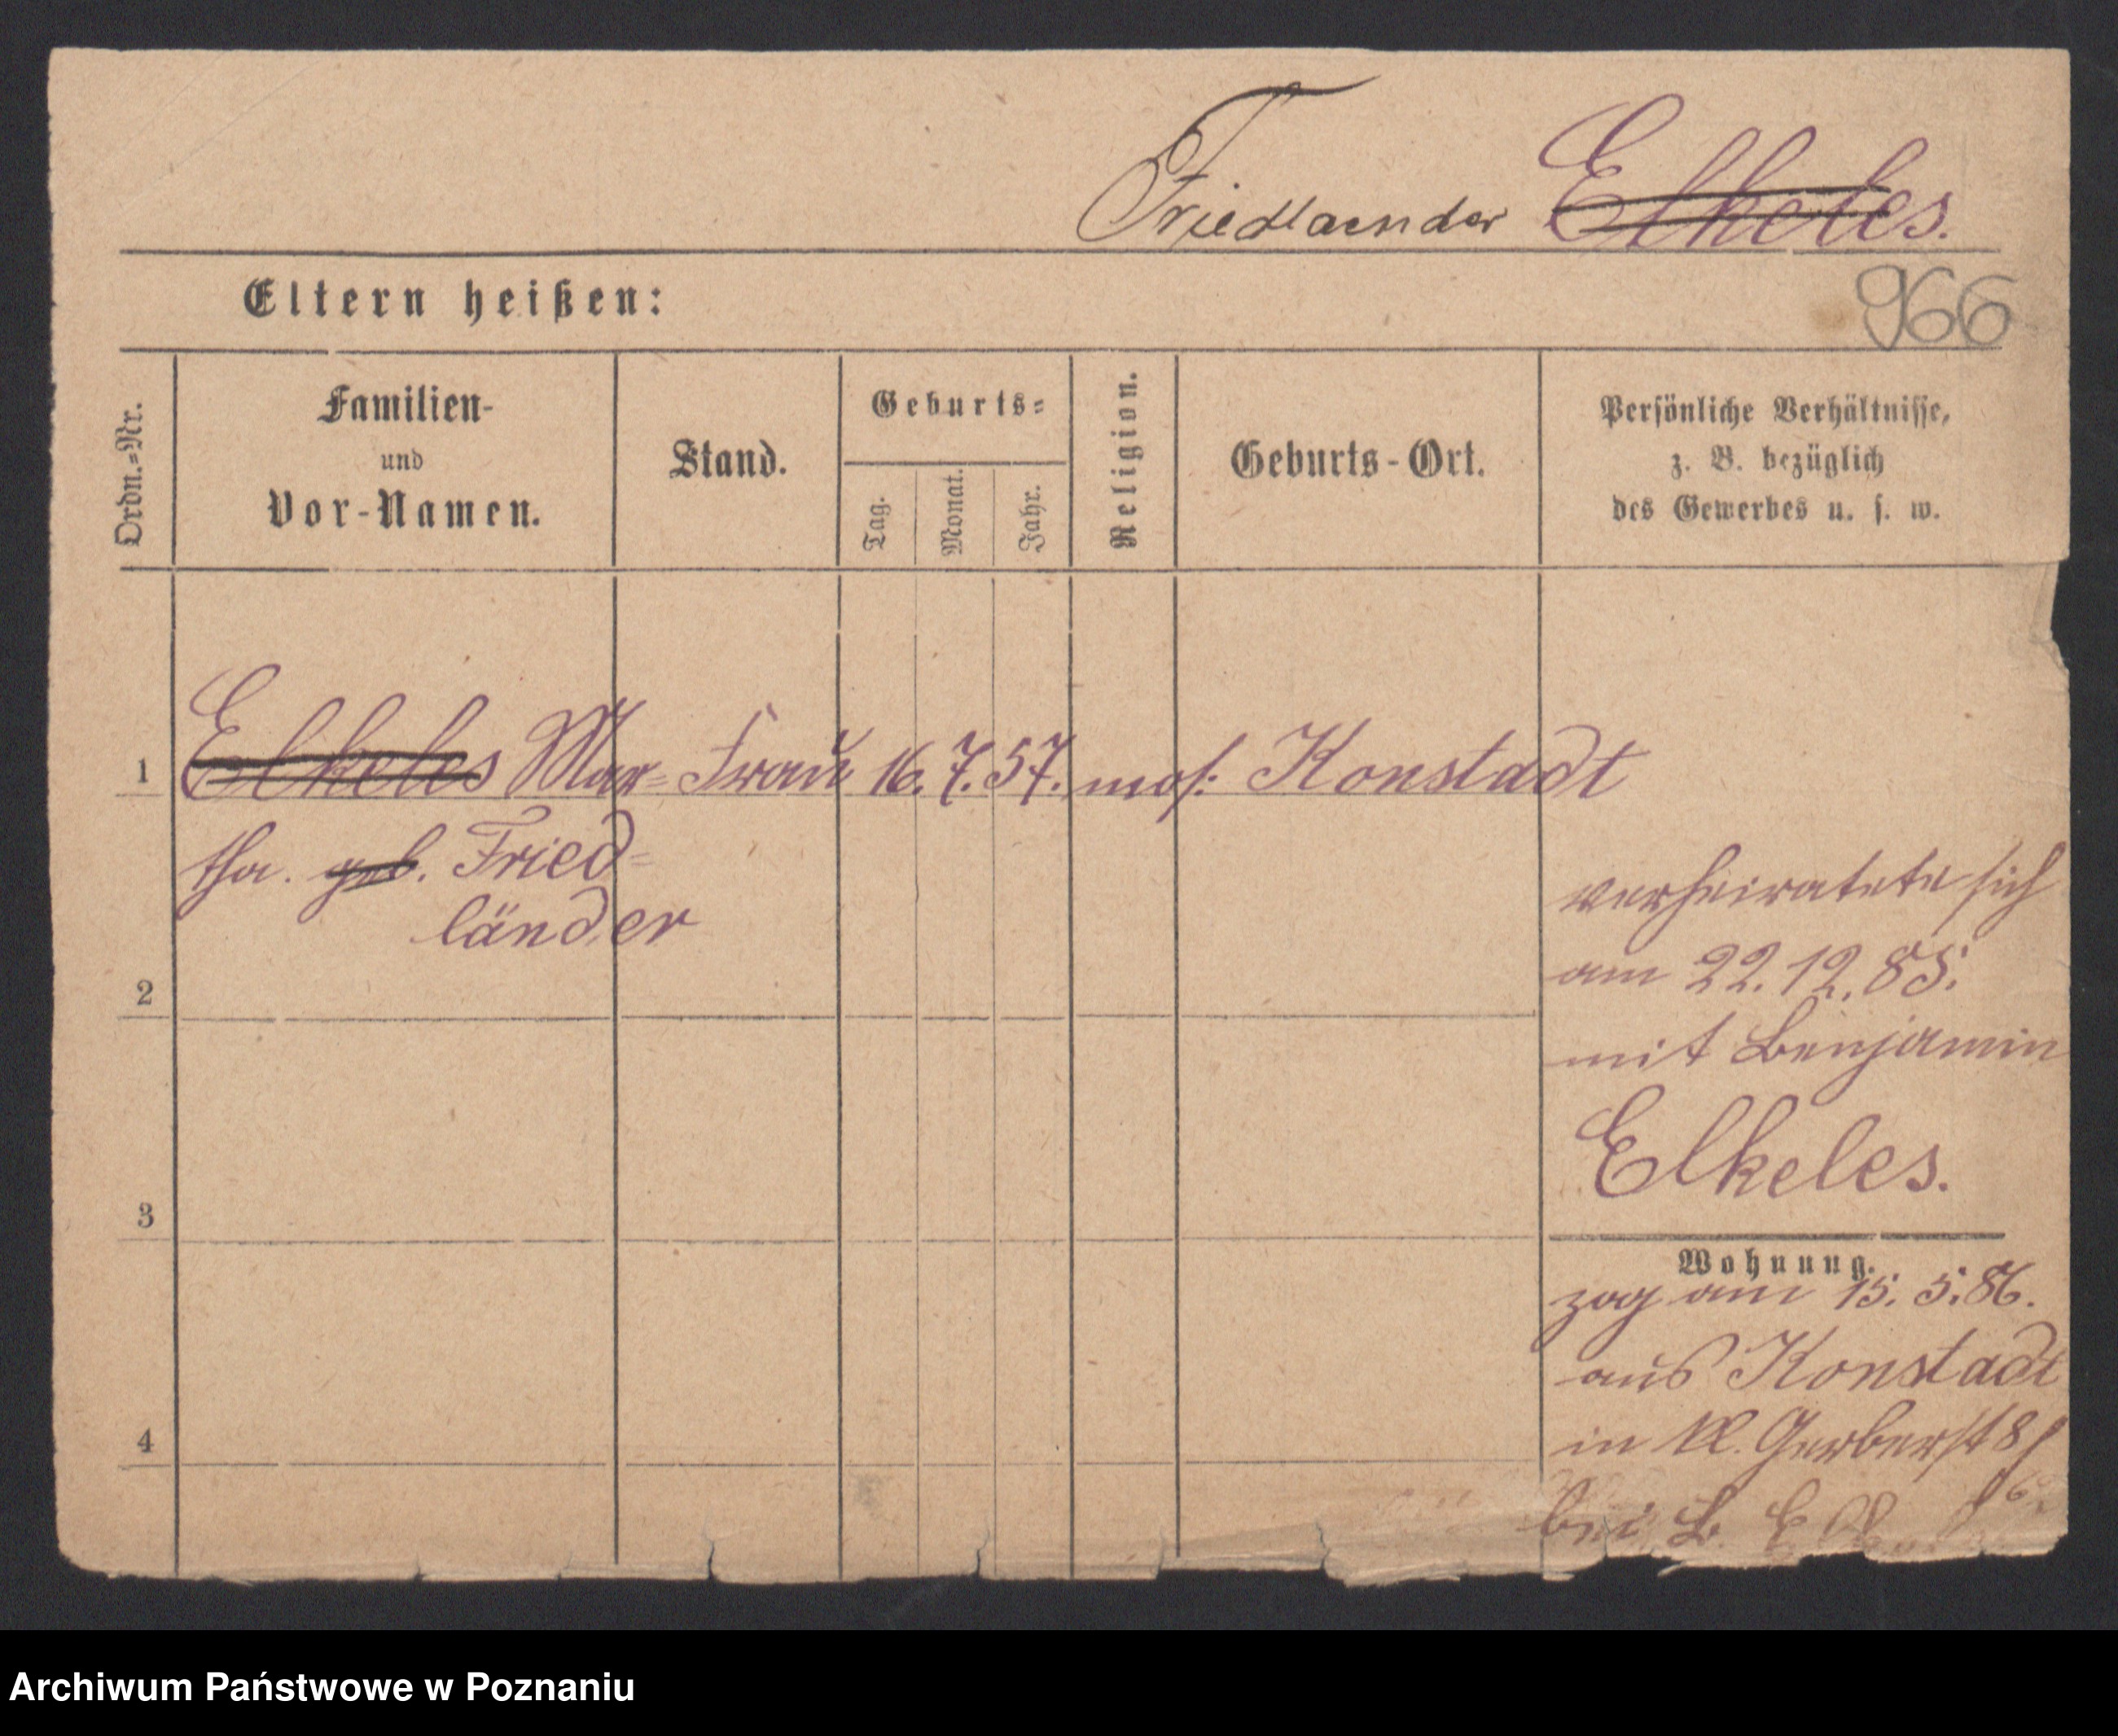 Friedlaender Elkeles.
Eltern heißen:
966
Ordn.=Nr.
Familien-
und
Vor-Namen.
Stand.
Geburts=
Tag.
Monat.
Jahr.
Religion.
Geburts-Ort.
Persönliche Verhältnisse,
z. B. bezüglich
des Gewerbes u. s. w.
1 Elkeles Mar= Frau 16. 7. 57. mos. Konstadt
tha. geb. Fried=
länder
verheiratete sich
am 22. 12. 85.
2
mit Benjamin
Elkeles.
3
Wohnung.
zog am 15. 5. 86.
aus Konstadt
in Kl. Gerberst 8
4
bei B.
Archiwum Państwowe w Poznaniu